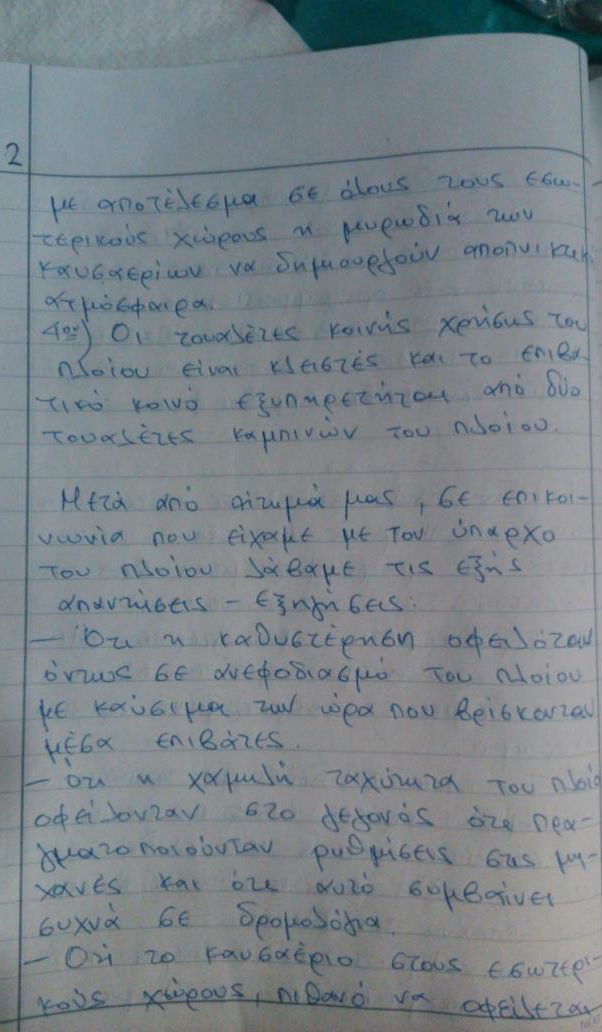 2
με αποτέλεσμα σε όλους τους εσω-
τερικούς χώρους η μυρωδιά των
καυσαερίων να δημιουργούν αποπνικτική
ατμόσφαιρα.
4ον) Οι τουαλέτες κοινής χρήσης του
πλοίου είναι κλειστές και το επιβα-
τικό κοινό εξυπηρετήται από δύο
τουαλέτες καμπινών του πλοίου.
Μετά από αίτημά μας, σε επικοι-
νωνία που είχαμε με τον ύπαρχο
του πλοίου λάβαμε τις εξής
απαντήσεις - εξηγήσεις:
- Ότι η καθυστέρηση οφειλόταν
όντως σε ανεφοδιασμό του πλοίου
με καύσιμα των ώρα που βρίσκονταν
μέσα επιβάτες.
- Ότι η χαμηλή ταχύτητα του πλοίο
οφείλονταν στο γεγονός ότι πρα-
γματοποιούνταν ρυθμίσεις στις μη-
χανές και ότι αυτό συμβαίνει
συχνά σε δρομολόγια.
- Ότι το καυσαέριο στους εσωτερι-
κούς χώρους, πιθανό να οφείλεται